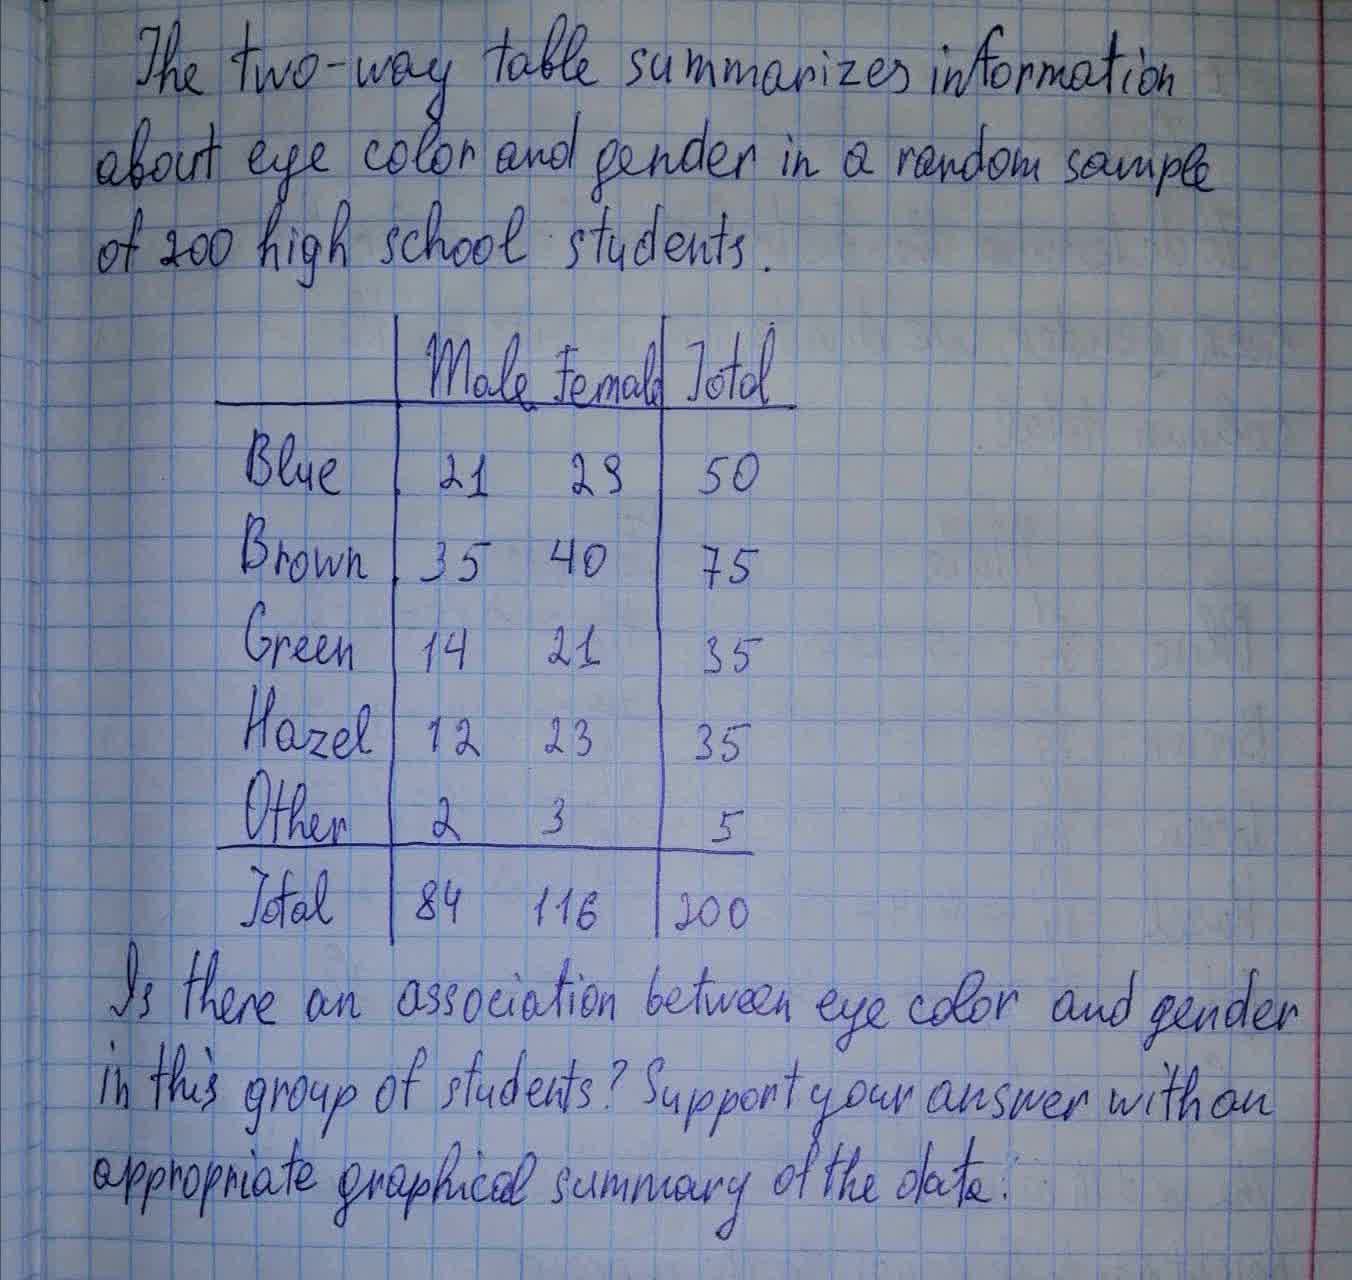 The two-way table summarizes information
about eye color and gender in a random sample
of 200 high school students.
Male Female Total
Blue 21 29 50
Brown 35 40 75
Green 14 21 35
Hazel 12 23 35
Other 2 3 5
Total 84 116 200
Is there an association between eye color and gender
in this group of students? Support your answer with an
appropriate graphical summary of the data.